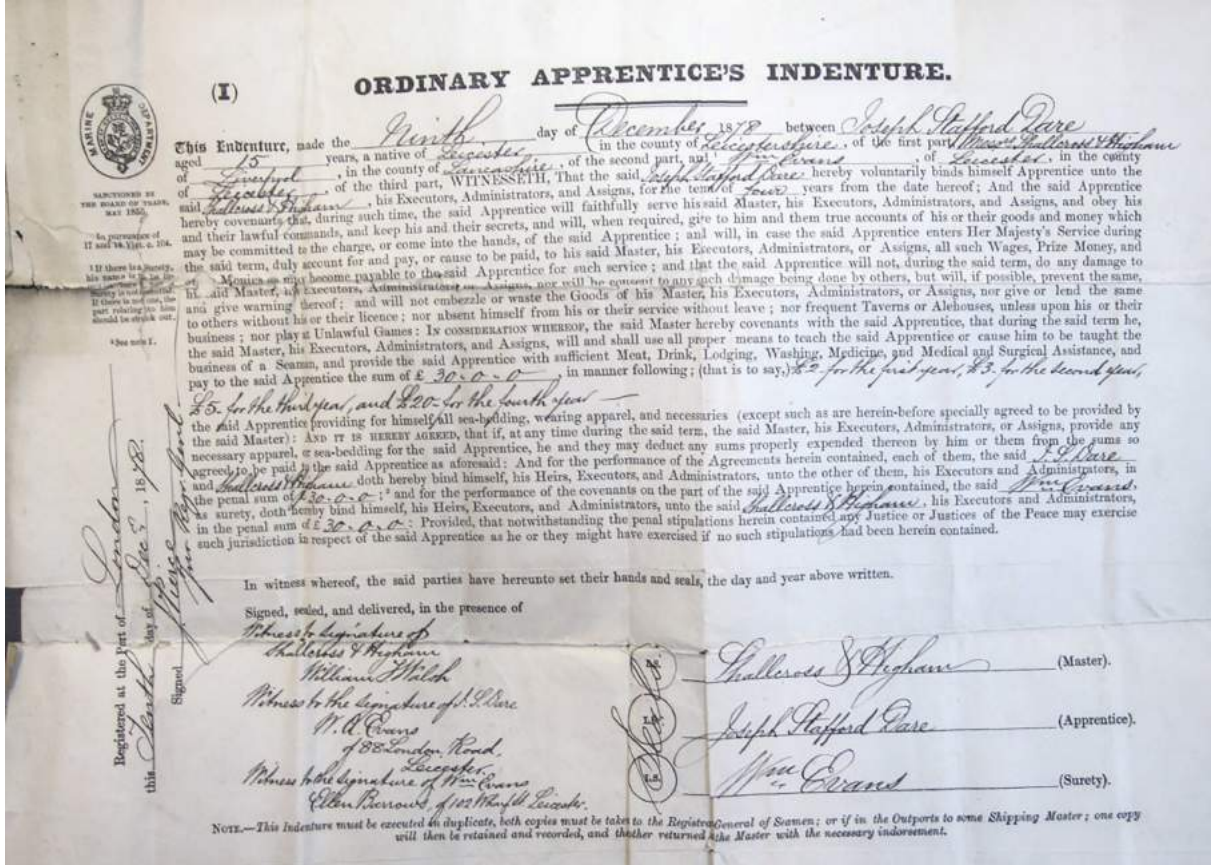 (I) ORDINARY APPRENTICE'S INDENTURE.
MARINE DEPARTMENT
SANCTIONED BY
THE BOARD OF TRADE,
MAY 1855,
In pursuance of
17 and 18 Vict. c. 104.
This Indenture, made the Ninth day of December 1878 between Joseph Stafford Dare
aged 15 years, a native of Leicester in the county of Leicestershire, of the first part, Messrs Shallcross & Higham
of Liverpool, in the county of Lancashire, of the second part, and Wm Evans, of Leicester, in the county
of Leicester, of the third part, WITNESSETH, That the said Joseph Stafford Dare hereby voluntarily binds himself Apprentice unto the
said Shallcross & Higham, his Executors, Administrators, and Assigns, for the term of four years from the date hereof; And the said Apprentice
hereby covenants that, during such time, the said Apprentice will faithfully serve his said Master, his Executors, Administrators, and Assigns, and obey his
and their lawful commands, and keep his and their secrets, and will, when required, give to him and them true accounts of his or their goods and money which
may be committed to the charge, or come into the hands, of the said Apprentice; and will, in case the said Apprentice enters Her Majesty's Service during
the said term, duly account for and pay, or cause to be paid, to his said Master, his Executors, Administrators, or Assigns, all such Wages, Prize Money, and
Monies as may become payable to the said Apprentice for such service; and that the said Apprentice will not, during the said term, do any damage to
his said Master, his Executors, Administrators, or Assigns, nor will he consent to any such damage being done by others, but will, if possible, prevent the same,
and give warning thereof; and will not embezzle or waste the Goods of his Master, his Executors, Administrators, or Assigns, nor give or lend the same
to others without his or their licence; nor absent himself from his or their service without leave; nor frequent Taverns or Alehouses, unless upon his or their
business; nor play at Unlawful Games: IN CONSIDERATION WHEREOF, the said Master hereby covenants with the said Apprentice, that during the said term he,
the said Master, his Executors, Administrators, and Assigns, will and shall use all proper means to teach the said Apprentice or cause him to be taught the
business of a Seaman, and provide the said Apprentice with sufficient Meat, Drink, Lodging, Washing, Medicine, and Medical and Surgical Assistance, and
pay to the said Apprentice the sum of £ 30-0-0, in manner following; (that is to say,) £2 for the first year, £3 for the second year,
£5 for the third year, and £20 for the fourth year —
the said Apprentice providing for himself all sea-bedding, wearing apparel, and necessaries (except such as are herein-before specially agreed to be provided by
the said Master): AND IT IS HEREBY AGREED, that if, at any time during the said term, the said Master, his Executors, Administrators, or Assigns, provide any
necessary apparel, or sea-bedding for the said Apprentice, he and they may deduct any sums properly expended thereon by him or them from the sums so
agreed to be paid to the said Apprentice as aforesaid: And for the performance of the Agreements herein contained, each of them, the said J. S. Dare
and Shallcross & Higham doth hereby bind himself, his Heirs, Executors, and Administrators, unto the other of them, his Executors and Administrators, in
the penal sum of £ 30-0-0;² and for the performance of the covenants on the part of the said Apprentice herein contained, the said Wm Evans,
as surety, doth hereby bind himself, his Heirs, Executors, and Administrators, unto the said Shallcross & Higham, his Executors and Administrators,
in the penal sum of £ 30-0-0: Provided, that notwithstanding the penal stipulations herein contained any Justice or Justices of the Peace may exercise
such jurisdiction in respect of the said Apprentice as he or they might have exercised if no such stipulations had been herein contained.
¹ If there is a Surety,
his name is to be
Surety is not
If there is not one, the
part relating to him
should be struck out.
² See note 1.
Registered at the Port of London
this Tenth day of Dec, 1878.
Signed
for Registrar General
In witness whereof, the said parties have hereunto set their hands and seals, the day and year above written.
Signed, sealed, and delivered, in the presence of
Witness to Signature of
Shallcross & Higham
William Walsh
L.S. Shallcross & Higham (Master).
Witness to the signature of J. S. Dare
W. A. Evans
of 88 London Road,
Leicester.
L.S. Joseph Stafford Dare (Apprentice).
Witness to the signature of Wm Evans
Ellen Burrows, of 102 Wharf St Leicester.
L.S. Wm Evans (Surety).
NOTE.—This Indenture must be executed in duplicate, both copies must be taken to the Registrar General of Seamen; or if in the Outports to some Shipping Master; one copy
will then be retained and recorded, and the other returned to the Master with the necessary indorsement.